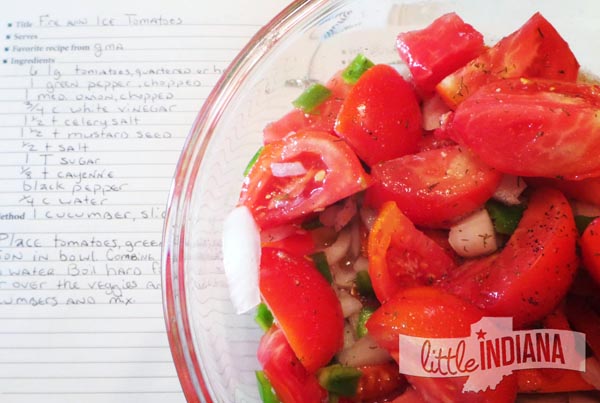 Title Fire and Ice Tomatoes
Serves
Favorite recipe from gma
Ingredients
6 lg tomatoes, quartered or
1 green pepper, chopped
1 med onion, chopped
3/4 c white vinegar
1 1/2 t celery salt
1 1/2 t mustard seed
1/2 t salt
1 T sugar
1/8 t cayenne
black pepper
1/4 c water
Method 1 cucumber,
Place tomatoes, green
in bowl. Combine
water Boil hard
over the veggies
and mix.
little INDIANA